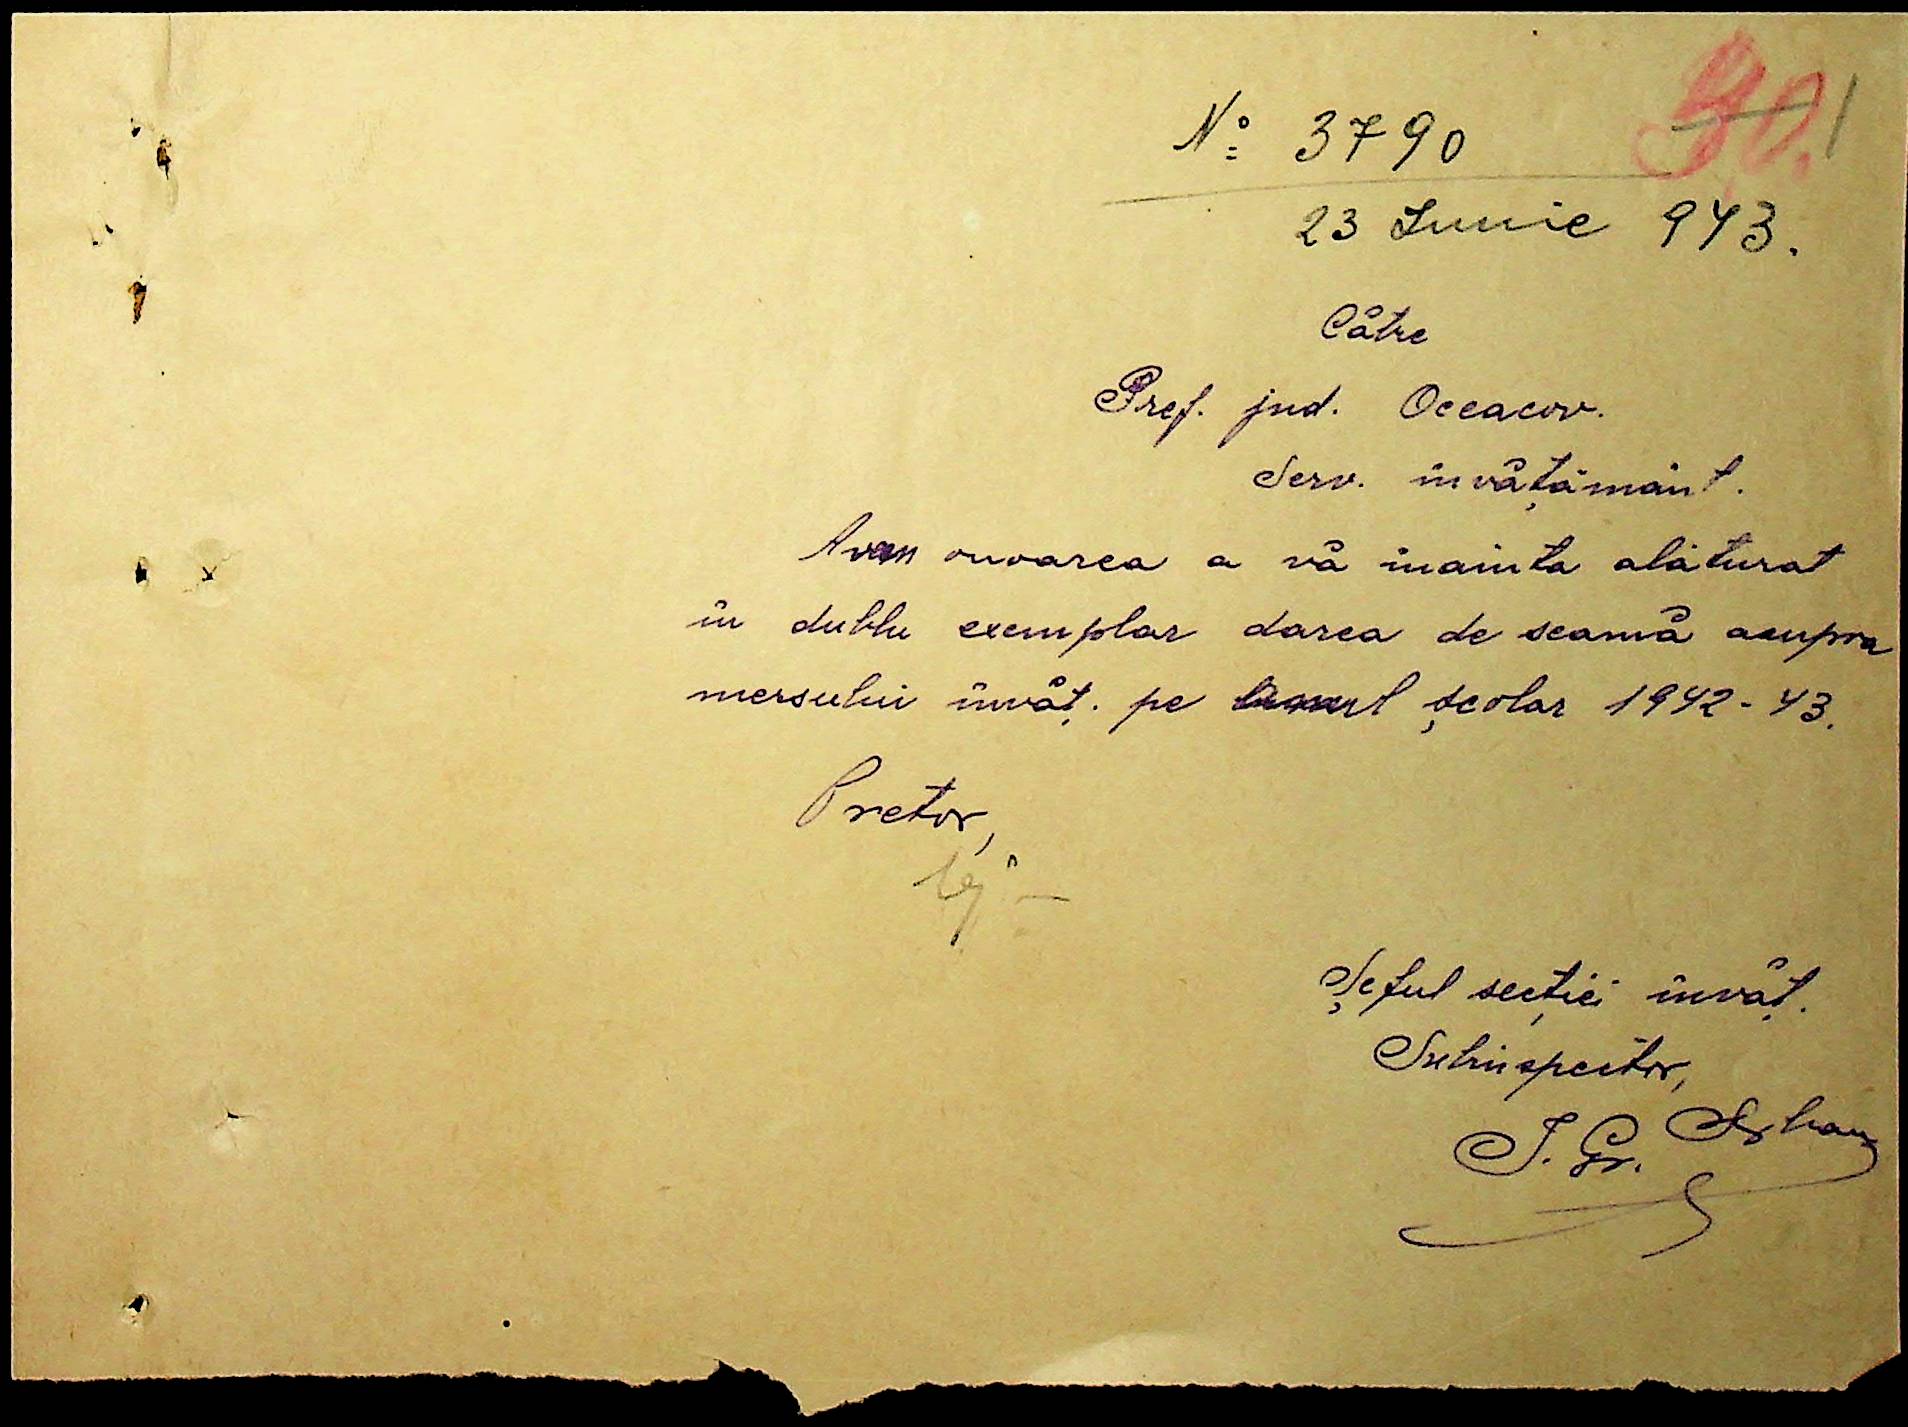 90. 1
Nº 3790
23 Iunie 943.
Către
Pref. jud. Oceacov.
Serv. învățământ.
Avem onoarea a vă înainta alăturat
în dublu exemplar darea de seamă asupra
mersului învăț. pe anul școlar 1942-43.
Pretor,
Șeful secției învăț.
Subinspector,
I. Gr.